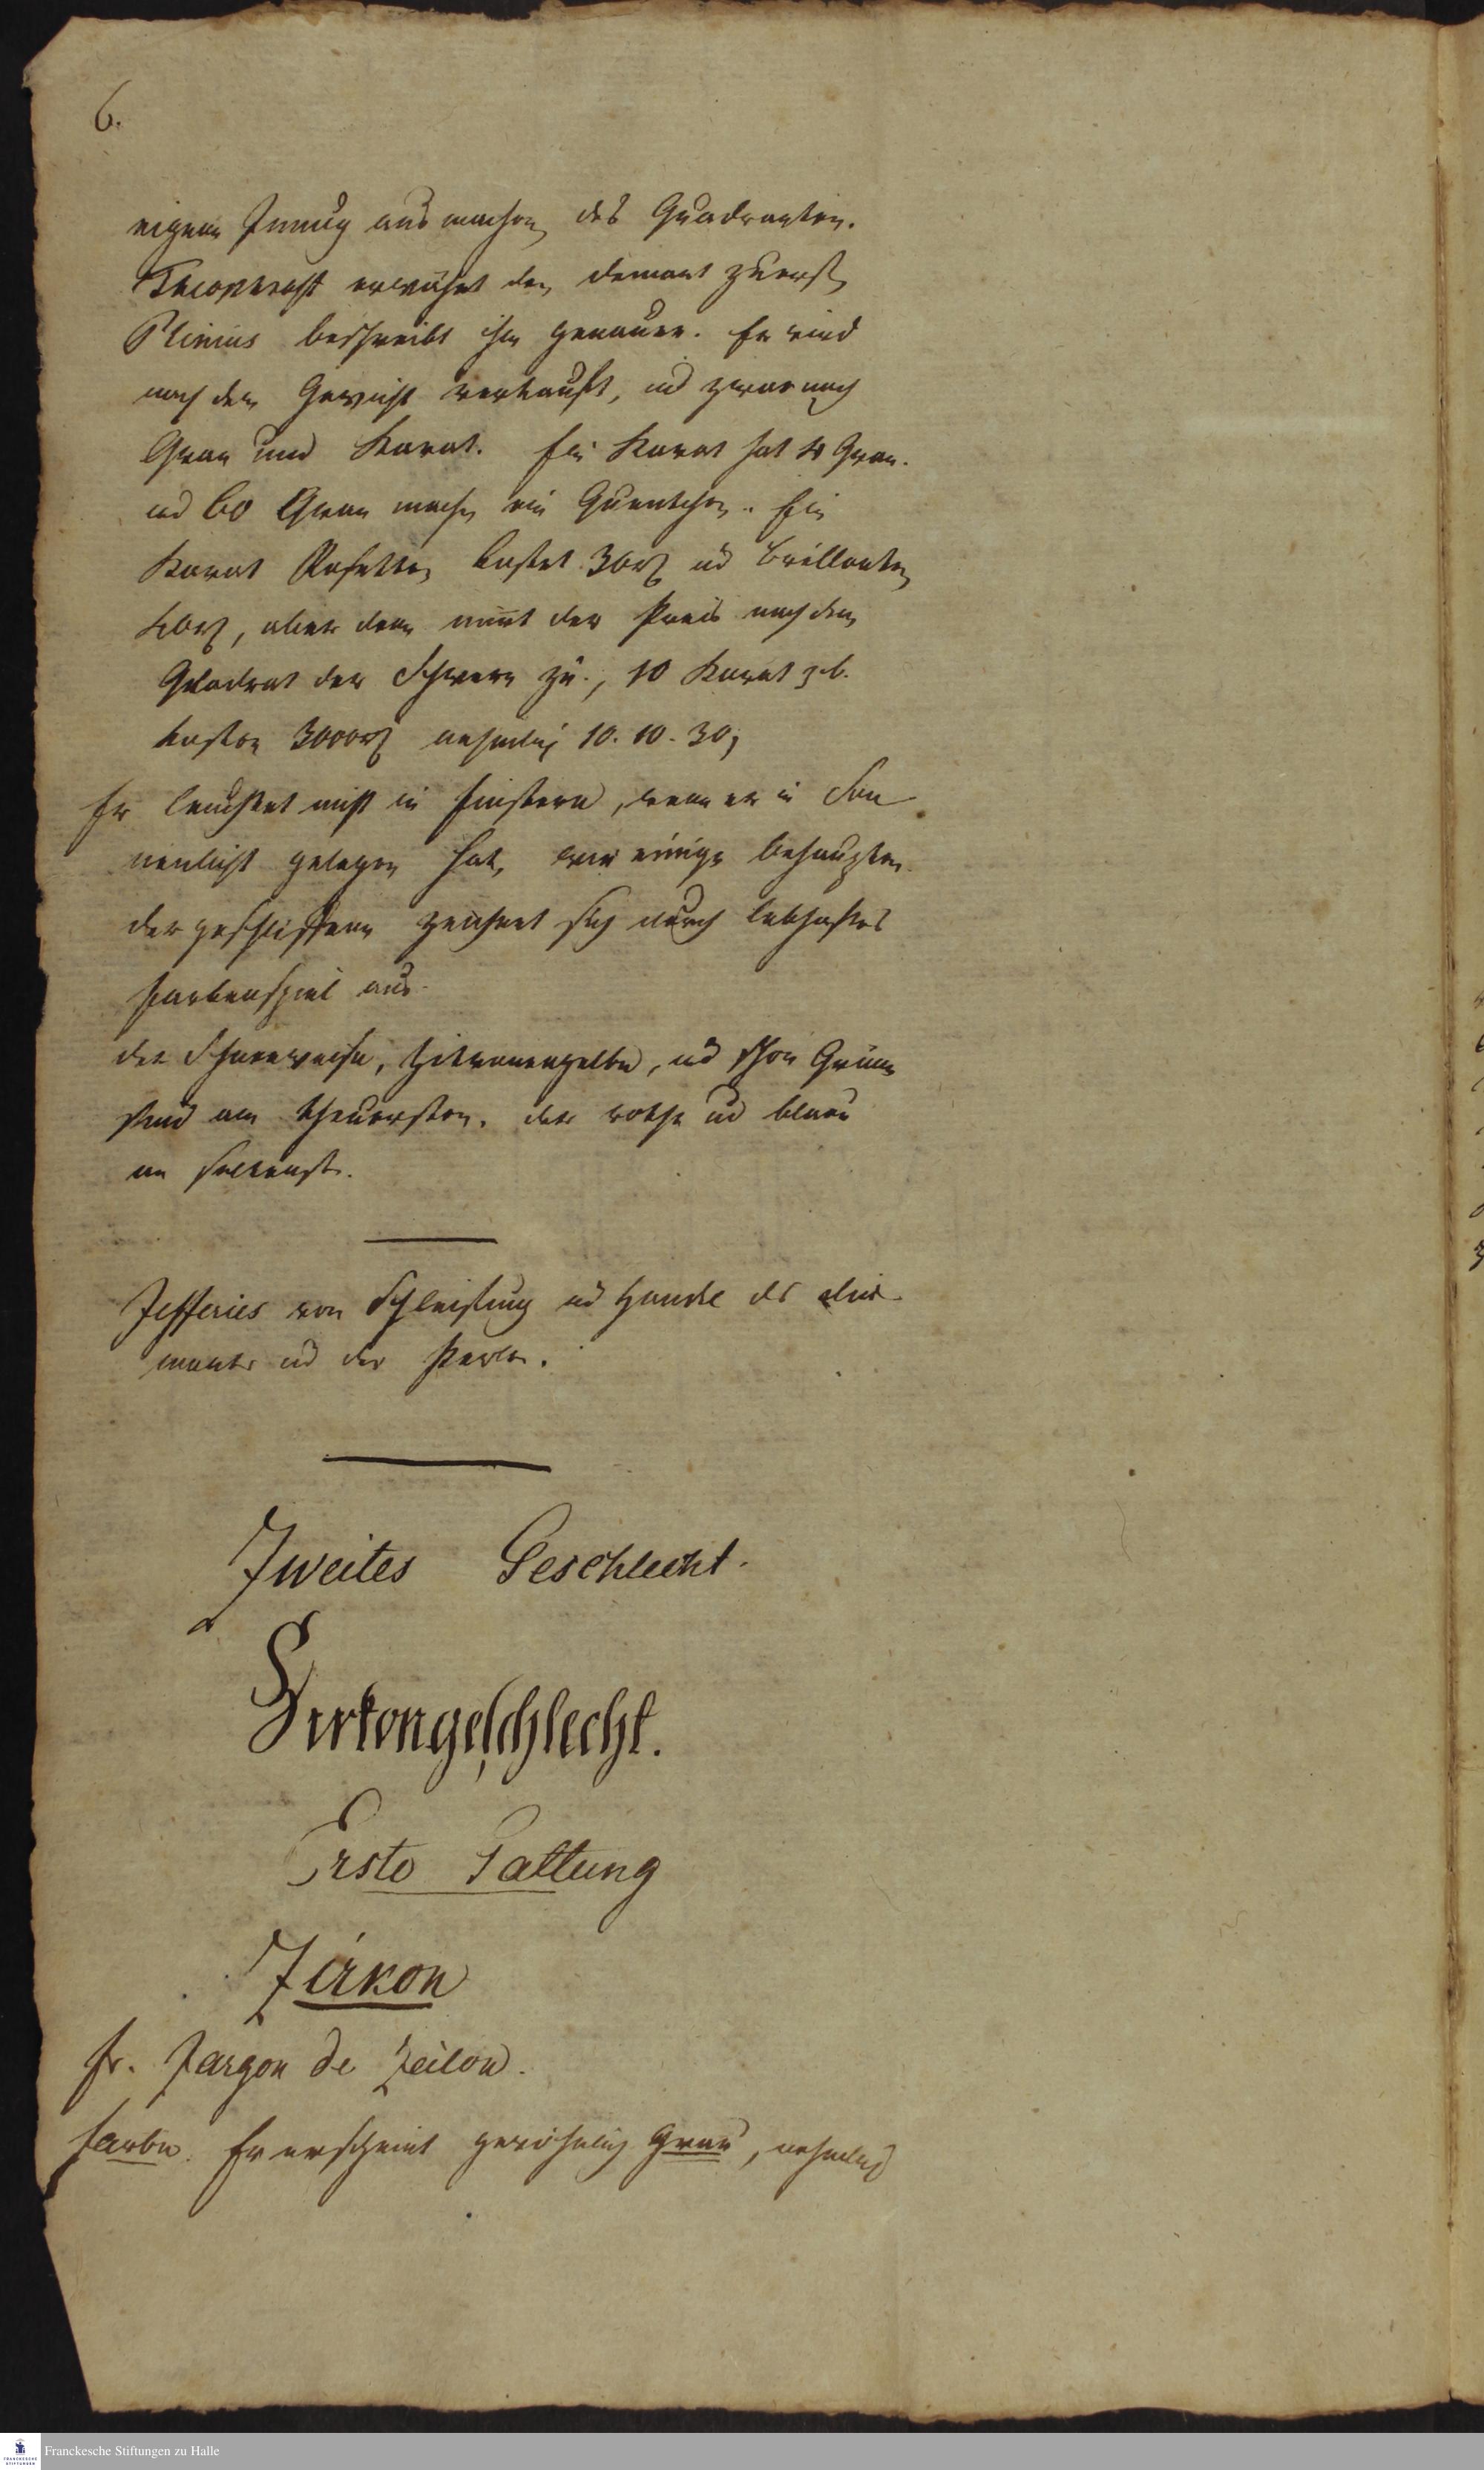 6.
eigene Innung ausmachen, des Quadranten.
Theophrast erwähnt den Demant zuerst,
Plinius beschreibt ihn genauer. Er wird
nach dem Gewicht verkauft, und zwar nach
Gran und Karat. Ein Karat hat 4 Gran.
und 60 Gran machen ein Quentchen. Ein
Karat Rosetten kostet 30 rh und Brillanten
rh, aber dann nim̄t der Preis nach dem
Quadrat der Schwere zu., 10 Karat z. b.
kosten 3000 rh nehmlich 10. 10. 30,
Er leuchtet nicht in Finstern, wenn er in Son
nenlicht gelegen hat, wie einige behaupten.
der geschliffene zeichnet sich durch lebhaftes
Farbenspiel aus.
der Schneeweiße, Zitronengelbe, und schön Grüne
sind am theuersten. der rothe und blaue
am seltenst.
Jefferies von Schleifung und Handel der Dia
mante und der Perlen.
Zweites Geschlecht.
Zirkongeschlecht.
Erste Gattung
Zirkon
fr. Jargon de Zeilon.
Farbe. Er erscheint gewöhnlich Grau, nehmlich
Franckesche Stiftungen zu Halle